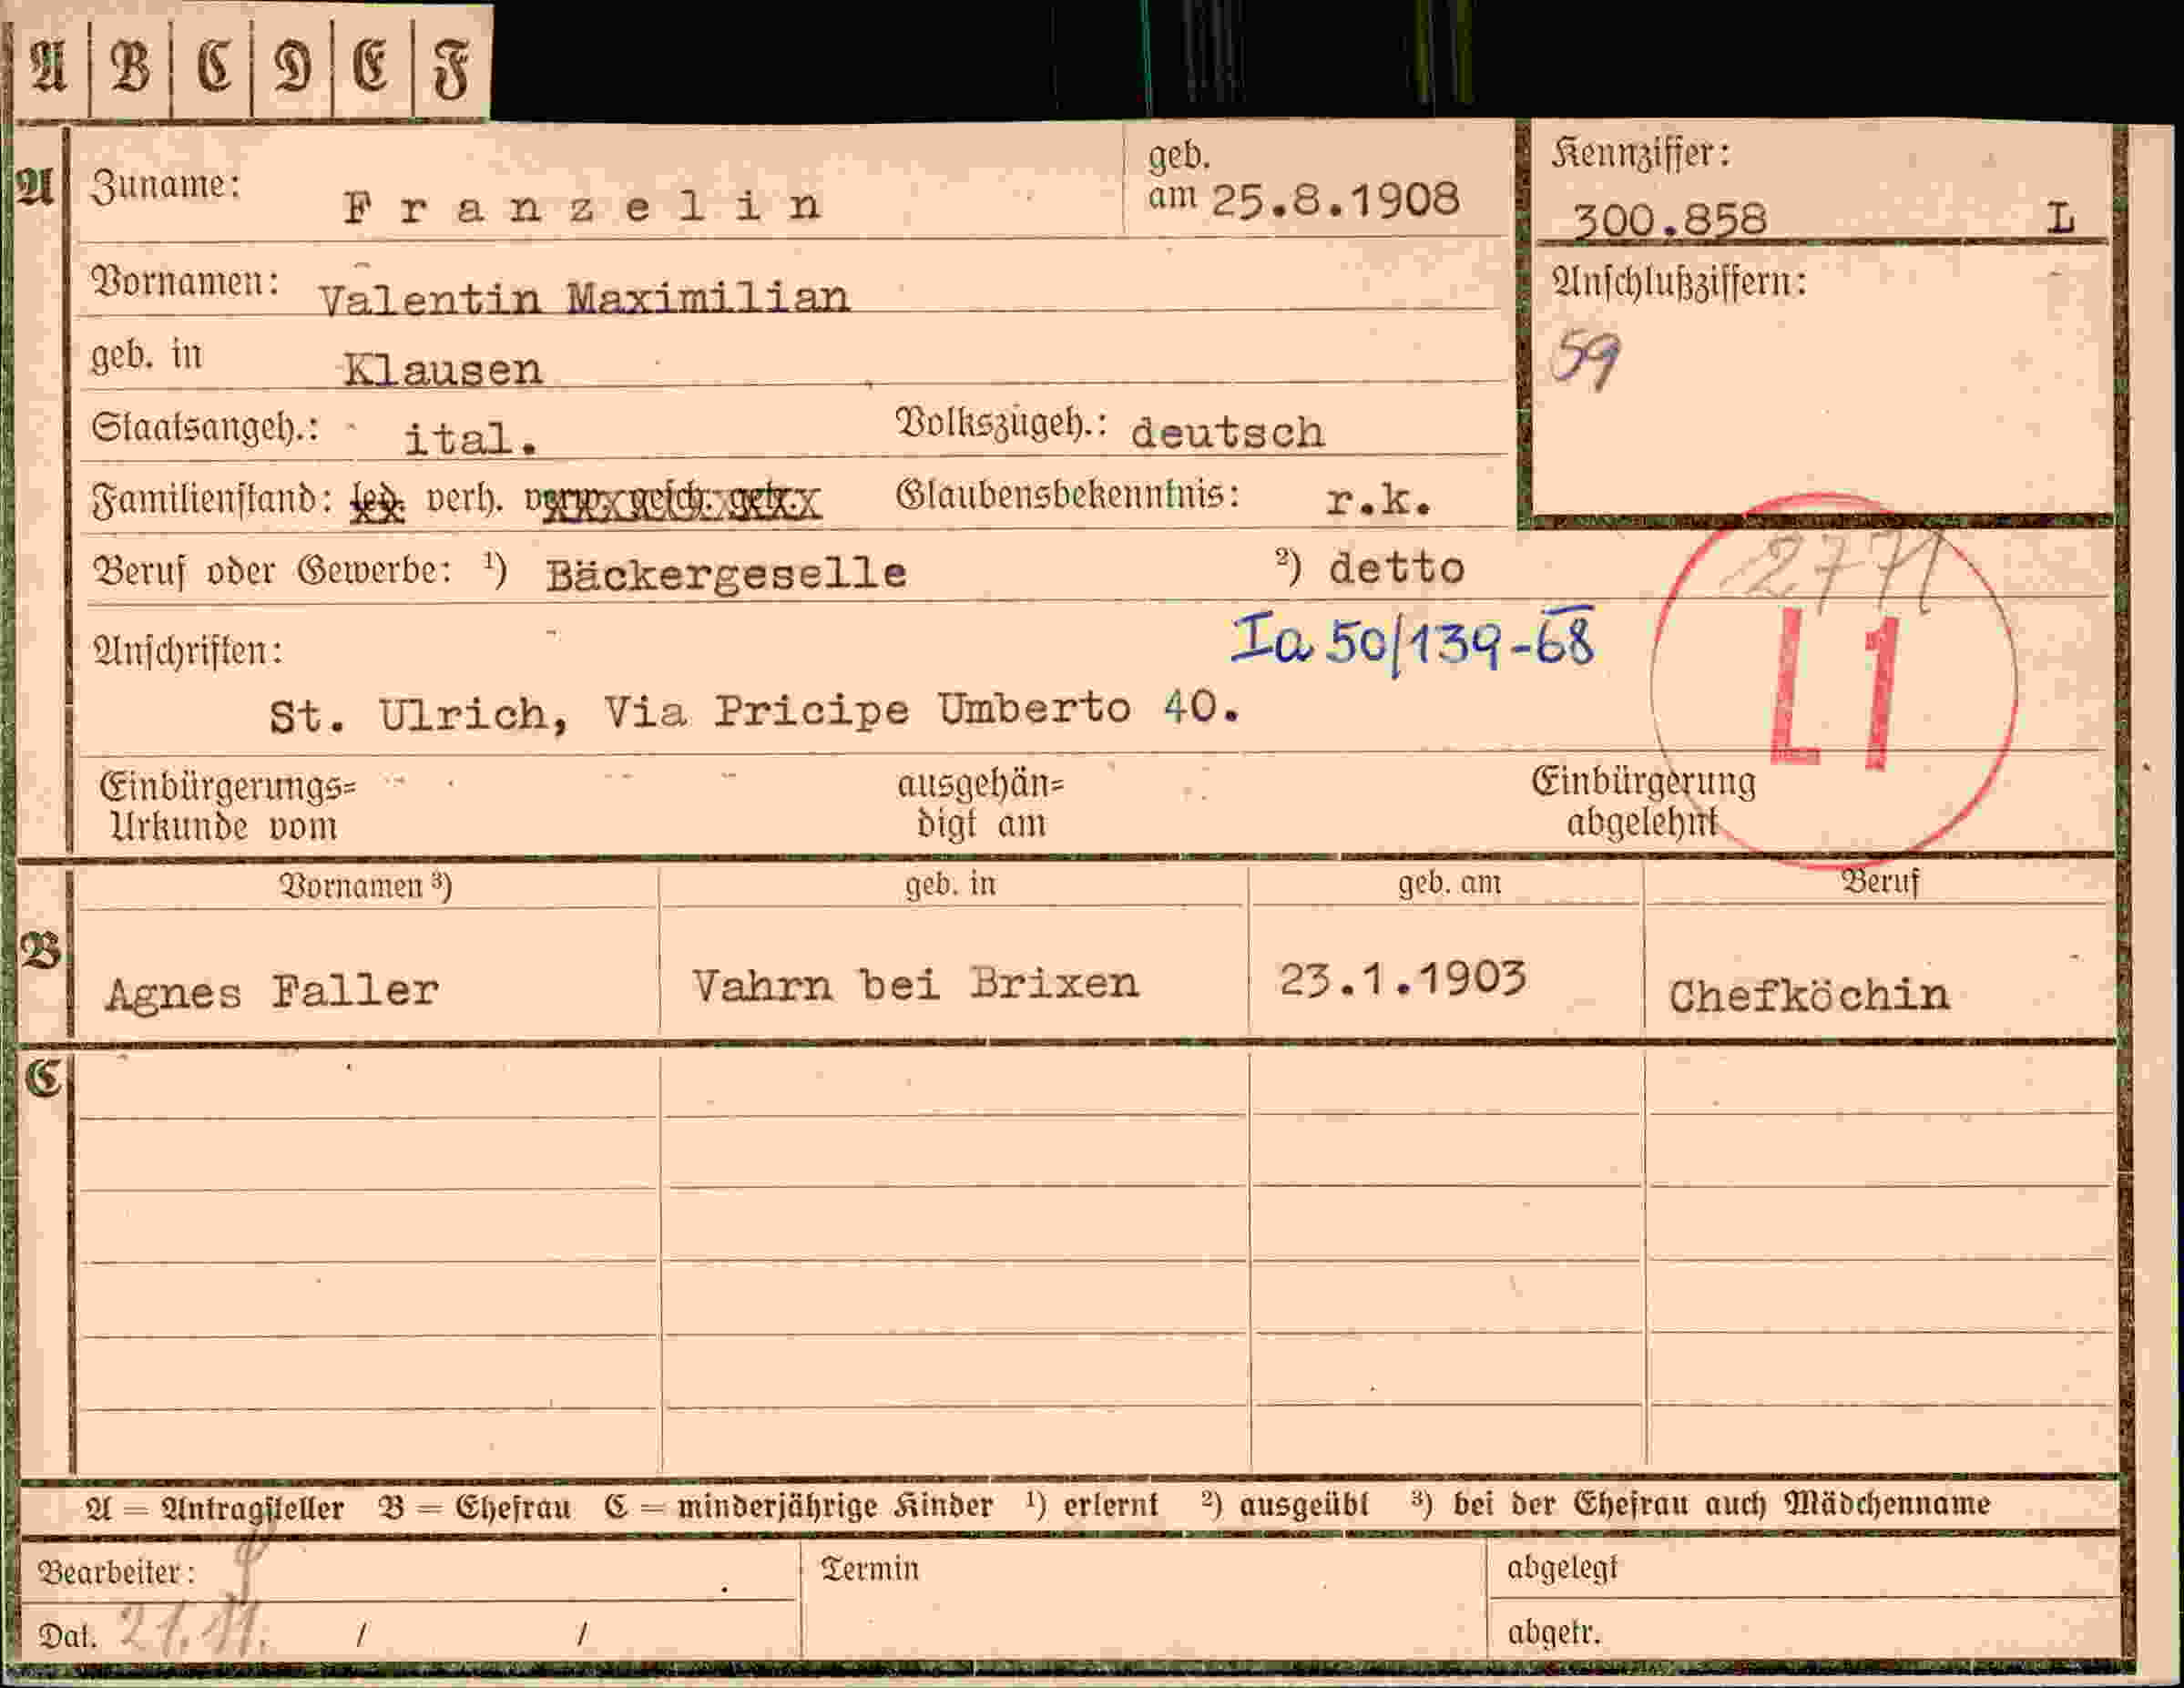 A B C D E F
A Zuname: Franzelin geb. am 25.8.1908 Kennziffer: 300.858 L
Vornamen: Valentin Maximilian Anschlußziffern:
geb. in Klausen 59
Staatsangeh.: ital. Volkszugeh.: deutsch
Familienstand: led. verh. verw. gesch. getr. Glaubensbekenntnis: r.k.
Beruf oder Gewerbe: ¹) Bäckergeselle ²) detto 2771
Anschriften: Ia 50/139-68 L1
St. Ulrich, Via Pricipe Umberto 40.
Einbürgerungs= ausgehän= Einbürgerung
Urkunde vom digt am abgelehnt
Vornamen ³) geb. in geb. am Beruf
B Agnes Faller Vahrn bei Brixen 23.1.1903 Chefköchin
C
A = Antragsteller B = Ehefrau C = minderjährige Kinder ¹) erlernt ²) ausgeübt ³) bei der Ehefrau auch Mädchenname
Bearbeiter: Termin abgelegt
Dat. 21.11. / / abgetr.